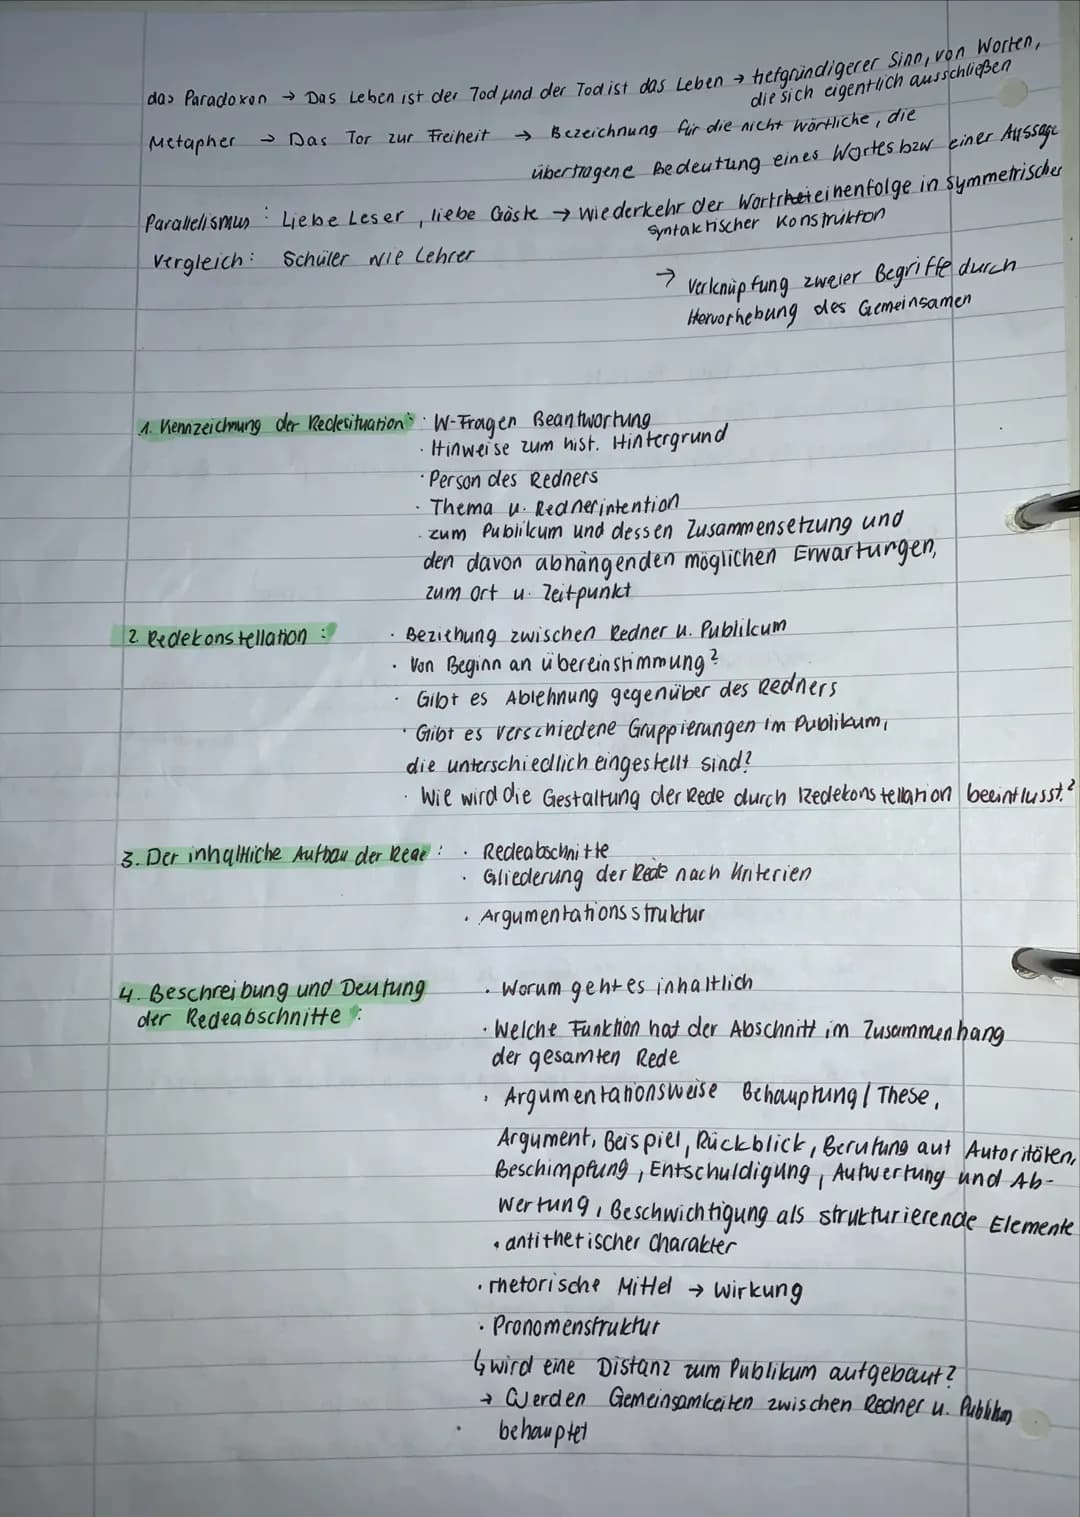 das Paradoxon → Das Leben ist der Tod und der Tod ist das Leben → tiefgründigerer Sinn, von Worten,
die sich eigentlich ausschließen
Metapher → Das Tor zur Freiheit → Bezeichnung für die nicht wörtliche, die
übertragene Bedeutung eines Wortes bzw einer Aussage
Parallelismus : Liebe Leser, liebe Gäste → Wiederkehr der Wortreheieinenfolge in symmetrischer
syntaktischer Konstruktion
Vergleich : Schüler wie Lehrer
→ Verknüpfung zweier Begriffe durch
Hervorhebung des Gemeinsamen
1. Kennzeichnung der Redesituation : · W-Fragen Beantwortung
· Hinweise zum hist. Hintergrund
· Person des Redners
· Thema u. Rednerintention
· zum Publikum und dessen Zusammensetzung und
den davon abhängenden möglichen Erwartungen,
zum Ort u. Zeitpunkt
2. Redekonstellation : · Beziehung zwischen Redner u. Publikum
· Von Beginn an übereinstimmung?
· Gibt es Ablehnung gegenüber des Redners
· Gibt es verschiedene Gruppierungen im Publikum,
die unterschiedlich eingestellt sind?
· Wie wird die Gestaltung der Rede durch Redekonstellation beeinflusst?
3. Der inhaltliche Aufbau der Rede : · Redeabschnitte
· Gliederung der Rede nach Kriterien
· Argumentationsstruktur
4. Beschreibung und Deutung · Worum geht es inhaltlich
der Redeabschnitte :
· Welche Funktion hat der Abschnitt im Zusammenhang
der gesamten Rede
· Argumentationsweise Behauptung / These,
Argument, Beispiel, Rückblick, Berufung auf Autoritäten,
Beschimpfung, Entschuldigung, Aufwertung und Ab-
wertung, Beschwichtigung als strukturierende Elemente
· antithetischer Charakter
· rhetorische Mittel → Wirkung
· Pronomenstruktur
↳ wird eine Distanz zum Publikum aufgebaut?
→ Werden Gemeinsamkeiten zwischen Redner u. Publikum
behauptet